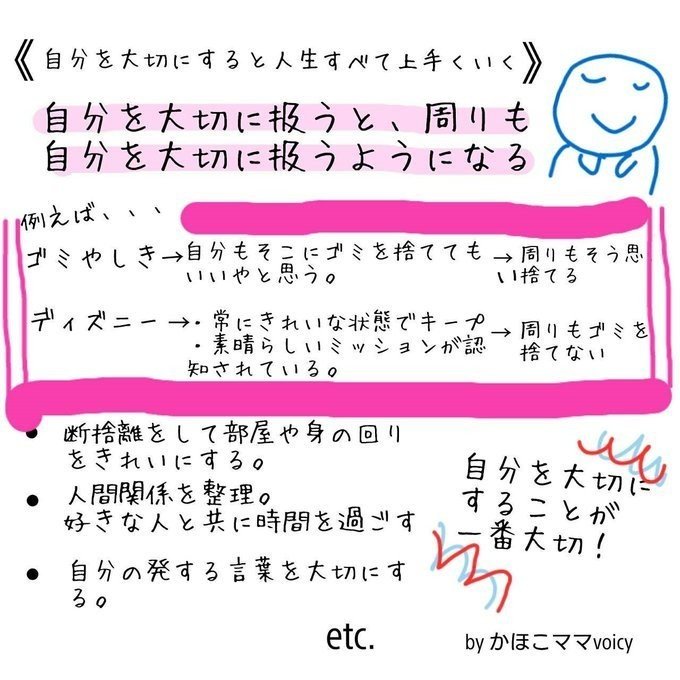 《自分を大切にすると人生すべて上手くいく》
自分を大切に扱うと、周りも
自分を大切に扱うようになる
例えば、、、
ゴミやしき→自分もそこにゴミを捨てても
いいやと思う。
→周りもそう思
い捨てる
ディズニー→・常にきれいな状態でキープ
・素晴らしいミッションが認
知されている。
→周りもゴミを
捨てない
● 断捨離をして部屋や身の回り
をきれいにする。
● 人間関係を整理。
好きな人と共に時間を過ごす
● 自分の発する言葉を大切にす
る。
自分を大切に
することが
一番大切!
etc.
by かほこママvoicy